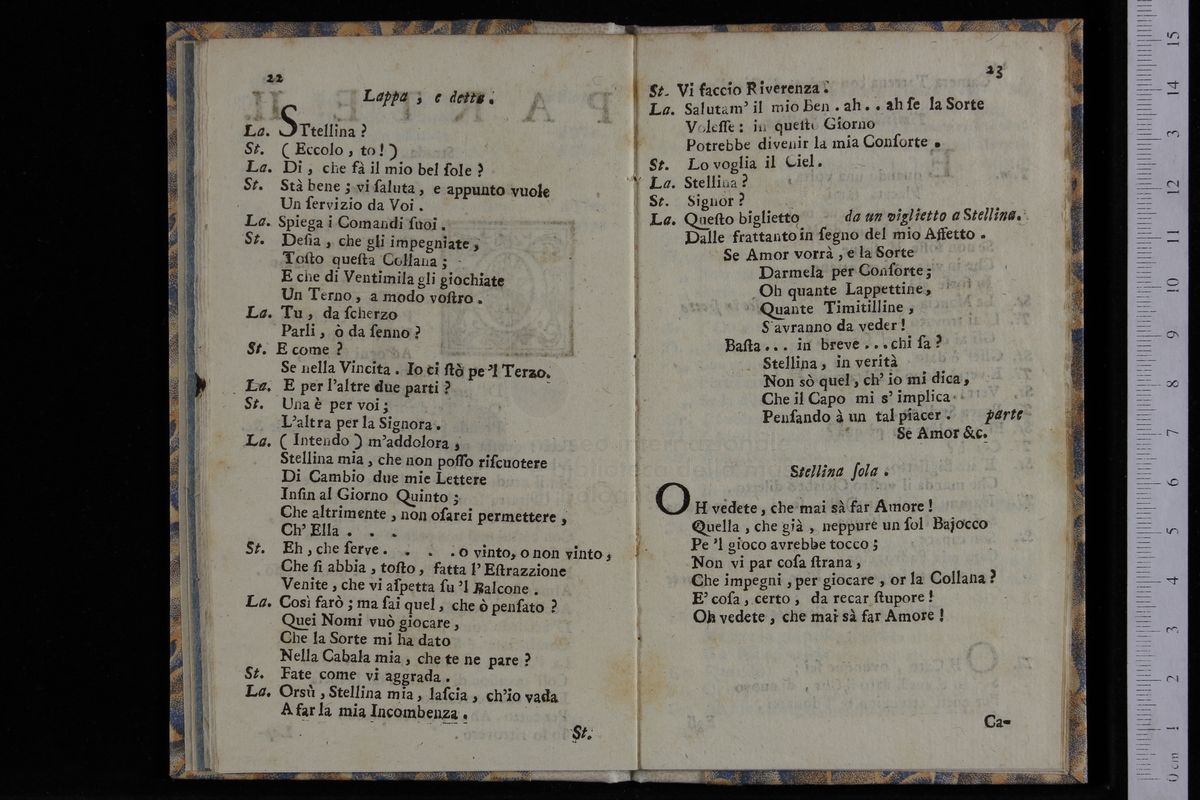 22
Lappa, e detta.
La. STtellina?
St. (Eccolo, to!)
La. Di, che fà il mio bel ſole?
St. Stà bene; vi ſaluta, e appunto vuole
Un ſervizio da Voi.
La. Spiega i Comandi ſuoi.
St. Deſia, che gli impegniate,
Toſto queſta Collana;
E che di Ventimila gli giochiate
Un Terno, a modo voſtro.
La. Tu, da ſcherzo
Parli, ò da ſenno?
St. E come?
Se nella Vincita. Io ci ſtò pe'l Terzo.
La. E per l'altre due parti?
St. Una è per voi;
L'altra per la Signora.
La. (Intendo) m'addolora,
Stellina mia, che non poſſo riſcuotere
Di Cambio due mie Lettere
Inſin al Giorno Quinto;
Che altrimente, non oſarei permettere,
Ch' Ella . . .
St. Eh, che ſerve. . . . . o vinto, o non vinto,
Che ſi abbia, toſto, fatta l' Eſtrazzione
Venite, che vi aſpetta ſu 'l Balcone.
La. Così farò; ma ſai quel, che ò penſato?
Quei Nomi vuò giocare,
Che la Sorte mi ha dato
Nella Cabala mia, che te ne pare?
St. Fate come vi aggrada.
La. Orsù, Stellina mia, laſcia, ch'io vada
A far la mia Incombenza.
St.
23
St. Vi faccio Riverenza.
La. Salutam' il mio Ben. ah.. ah ſe la Sorte
Voleſſe: in queſto Giorno
Potrebbe divenir la mia Conſorte.
St. Lo voglia il Ciel.
La. Stellina?
St. Signor?
La. Queſto biglietto da un viglietto a Stellina.
Dalle frattanto in ſegno del mio Affetto.
Se Amor vorrà, e la Sorte
Darmela per Conſorte;
Oh quante Lappettine,
Quante Timitilline,
S'avranno da veder!
Baſta... in breve... chi ſa?
Stellina, in verità
Non sò quel, ch' io mi dica,
Che il Capo mi s' implica
Penſando à un tal piacer. parte
Se Amor &c.
Stellina ſola.
OH vedete, che mai sà far Amore!
Quella, che già, neppure un ſol Bajocco
Pe 'l gioco avrebbe tocco;
Non vi par coſa ſtrana,
Che impegni, per giocare, or la Collana?
E' coſa, certo, da recar ſtupore!
Oh vedete, che mai sà far Amore!
Ca-
0 cm 1 2 3 4 5 6 7 8 9 10 11 12 13 14 15